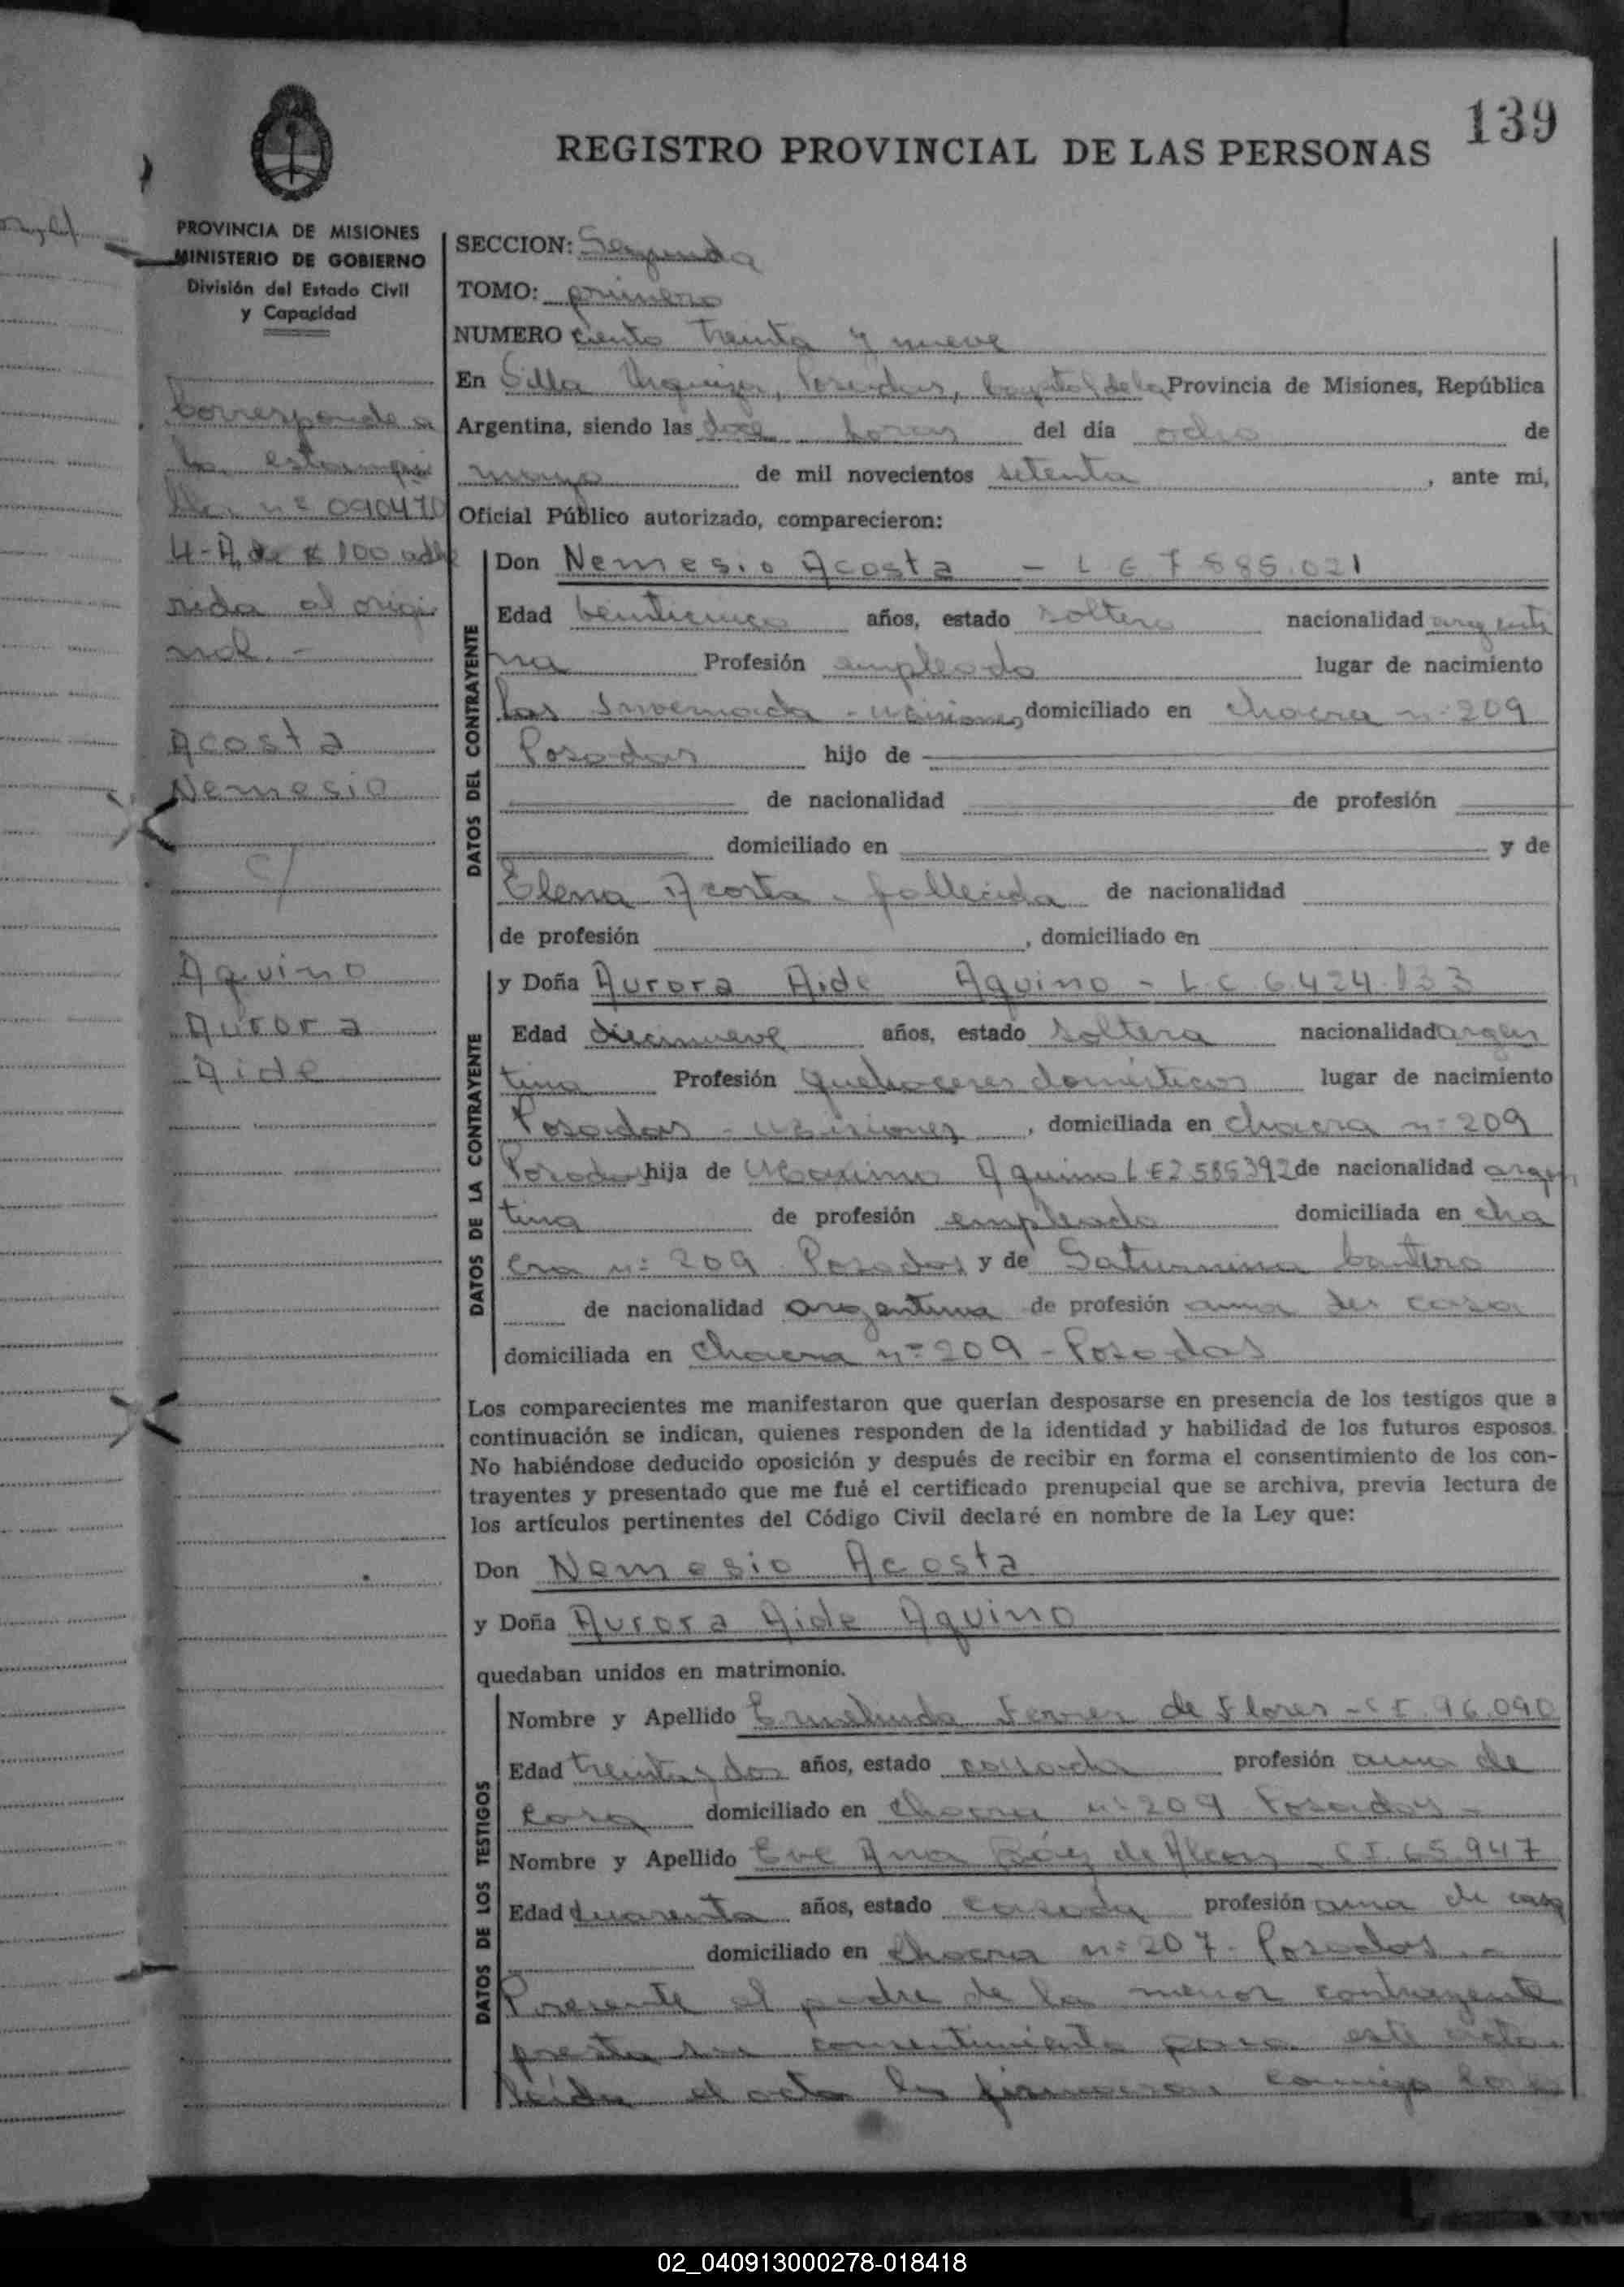 139
REGISTRO PROVINCIAL DE LAS PERSONAS
PROVINCIA DE MISIONES
MINISTERIO DE GOBIERNO
División del Estado Civil
y Capacidad
Corresponde a
la estampi
lla nº 090470
4-A de $ 100 adhe
rida al origi
nal.-
Acosta
Nemesio
c/
Aquino
Aurora
Aide
SECCION: Segunda
TOMO: primero
NUMERO ciento treinta y nueve
En Villa Urquiza, Posadas, Capital de la Provincia de Misiones, República
Argentina, siendo las doce horas del día ocho de
mayo de mil novecientos setenta, ante mi,
Oficial Público autorizado, comparecieron:
DATOS DEL CONTRAYENTE
Don Nemesio Acosta - L E 7.585.021
Edad veinticinco años, estado soltero nacionalidad argenti
na Profesión empleado lugar de nacimiento
Las Invernada - Misiones domiciliado en chacra nº 209
Posadas hijo de
de nacionalidad de profesión
domiciliado en y de
Elena Acosta - fallecida de nacionalidad
de profesión , domiciliado en
DATOS DE LA CONTRAYENTE
y Doña Aurora Aide Aquino - L C 6.424.133
Edad diecinueve años, estado soltera nacionalidad argen
tina Profesión quehaceres domésticos lugar de nacimiento
Posadas - Misiones , domiciliada en chacra nº 209
Posadas hija de Maximo Aquino L E 2.585392 de nacionalidad argen
tina de profesión empleado domiciliada en cha
cra nº 209 Posadas y de Saturnina Cantero
de nacionalidad argentina de profesión ama de casa
domiciliada en chacra nº 209 - Posadas
Los comparecientes me manifestaron que querían desposarse en presencia de los testigos que a
continuación se indican, quienes responden de la identidad y habilidad de los futuros esposos.
No habiéndose deducido oposición y después de recibir en forma el consentimiento de los con-
trayentes y presentado que me fué el certificado prenupcial que se archiva, previa lectura de
los artículos pertinentes del Código Civil declaré en nombre de la Ley que:
Don Nemesio Acosta
y Doña Aurora Aide Aquino
quedaban unidos en matrimonio.
DATOS DE LOS TESTIGOS
Nombre y Apellido Ermelinda Ferrer de Flores - C I. 96.090
Edad treinta y dos años, estado casada profesión ama de
casa domiciliado en chacra nº 209 Posadas -
Nombre y Apellido Eve Ana de C I. 65.947
Edad cuarenta años, estado casada profesión ama de casa
domiciliado en chacra nº 207 - Posadas -
Presente el padre de la menor contrayente
presta su consentimiento para este acto.
leída el acta la firmaron conmigo los
02_040913000278-018418